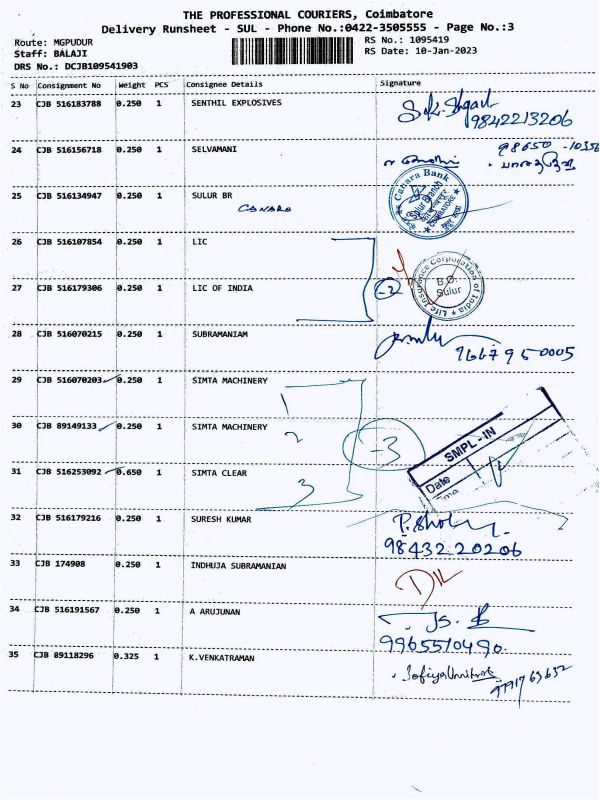 THE PROFESSIONAL COURIERS, Coimbatore
Delivery Runsheet - SUL - Phone No.:0422-3505555 - Page No.:3
Route: MGPUDUR
Staff: BALAJI
DRS No.: DCJB109541903
RS No.: 1095419
RS Date: 10-Jan-2023
S No Consignment No Weight PCS Consignee Details Signature
23 CJB 516183788 0.250 1 SENTHIL EXPLOSIVES
9842213206
24 CJB 516156718 0.250 1 SELVAMANI
98650 -10356
25 CJB 516134947 0.250 1 SULUR BR
CANARA
Canara Bank
Sulur Branch
COIMBATORE
26 CJB 516107854 0.250 1 LIC
27 CJB 516179306 0.250 1 LIC OF INDIA
-2
Life Insurance Corporation of India
B.O.
Sulur
28 CJB 516070215 0.250 1 SUBRAMANIAM
966795 0005
29 CJB 516070203 0.250 1 SIMTA MACHINERY
1
30 CJB 89149133 0.250 1 SIMTA MACHINERY
2
-3
SMPL-IN
Date
31 CJB 516253092 0.650 1 SIMTA CLEAR
3
32 CJB 516179216 0.250 1 SURESH KUMAR
98432 20206
33 CJB 174908 0.250 1 INDHUJA SUBRAMANIAN
34 CJB 516191567 0.250 1 A ARUJUNAN
9965510490.
35 CJB 89118296 0.325 1 K.VENKATRAMAN